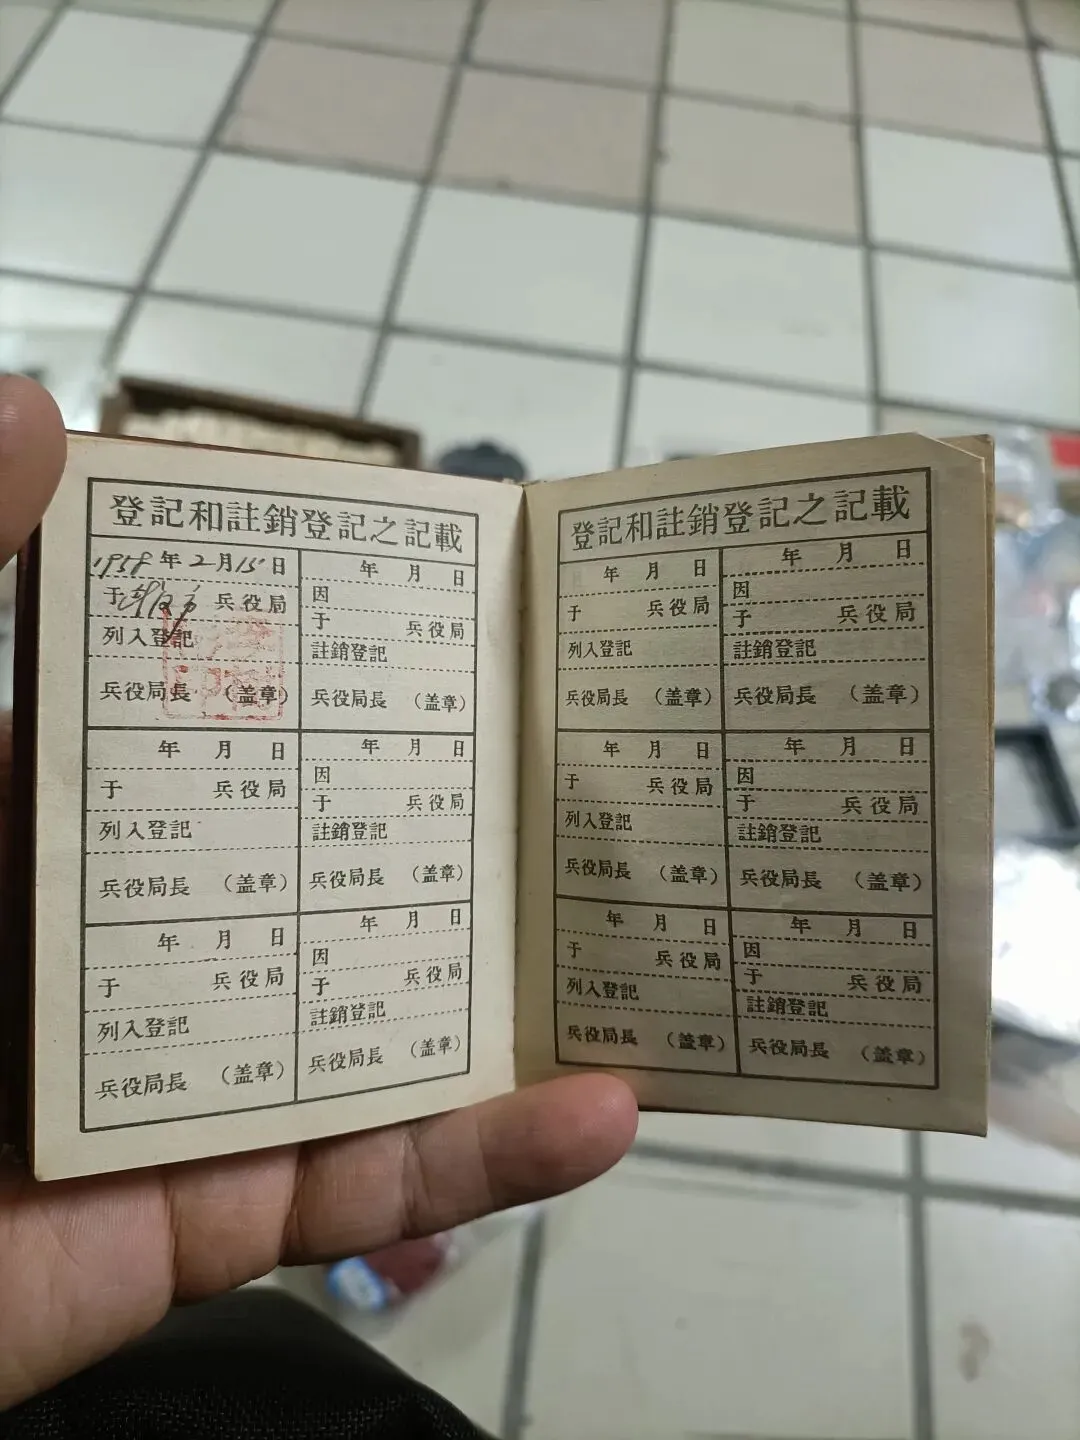 登記和註銷登記之記載
1958年2月15日
于 兵役局
列入登記
兵役局長 （盖章）
年 月 日
因
于 兵役局
註銷登記
兵役局長 （盖章）
年 月 日
于 兵役局
列入登記
兵役局長 （盖章）
年 月 日
因
于 兵役局
註銷登記
兵役局長 （盖章）
年 月 日
于 兵役局
列入登記
兵役局長 （盖章）
年 月 日
因
于 兵役局
註銷登記
兵役局長 （盖章）
登記和註銷登記之記載
年 月 日
于 兵役局
列入登記
兵役局長 （盖章）
年 月 日
因
于 兵役局
註銷登記
兵役局長 （盖章）
年 月 日
于 兵役局
列入登記
兵役局長 （盖章）
年 月 日
因
于 兵役局
註銷登記
兵役局長 （盖章）
年 月 日
于 兵役局
列入登記
兵役局長 （盖章）
年 月 日
因
于 兵役局
註銷登記
兵役局長 （盖章）